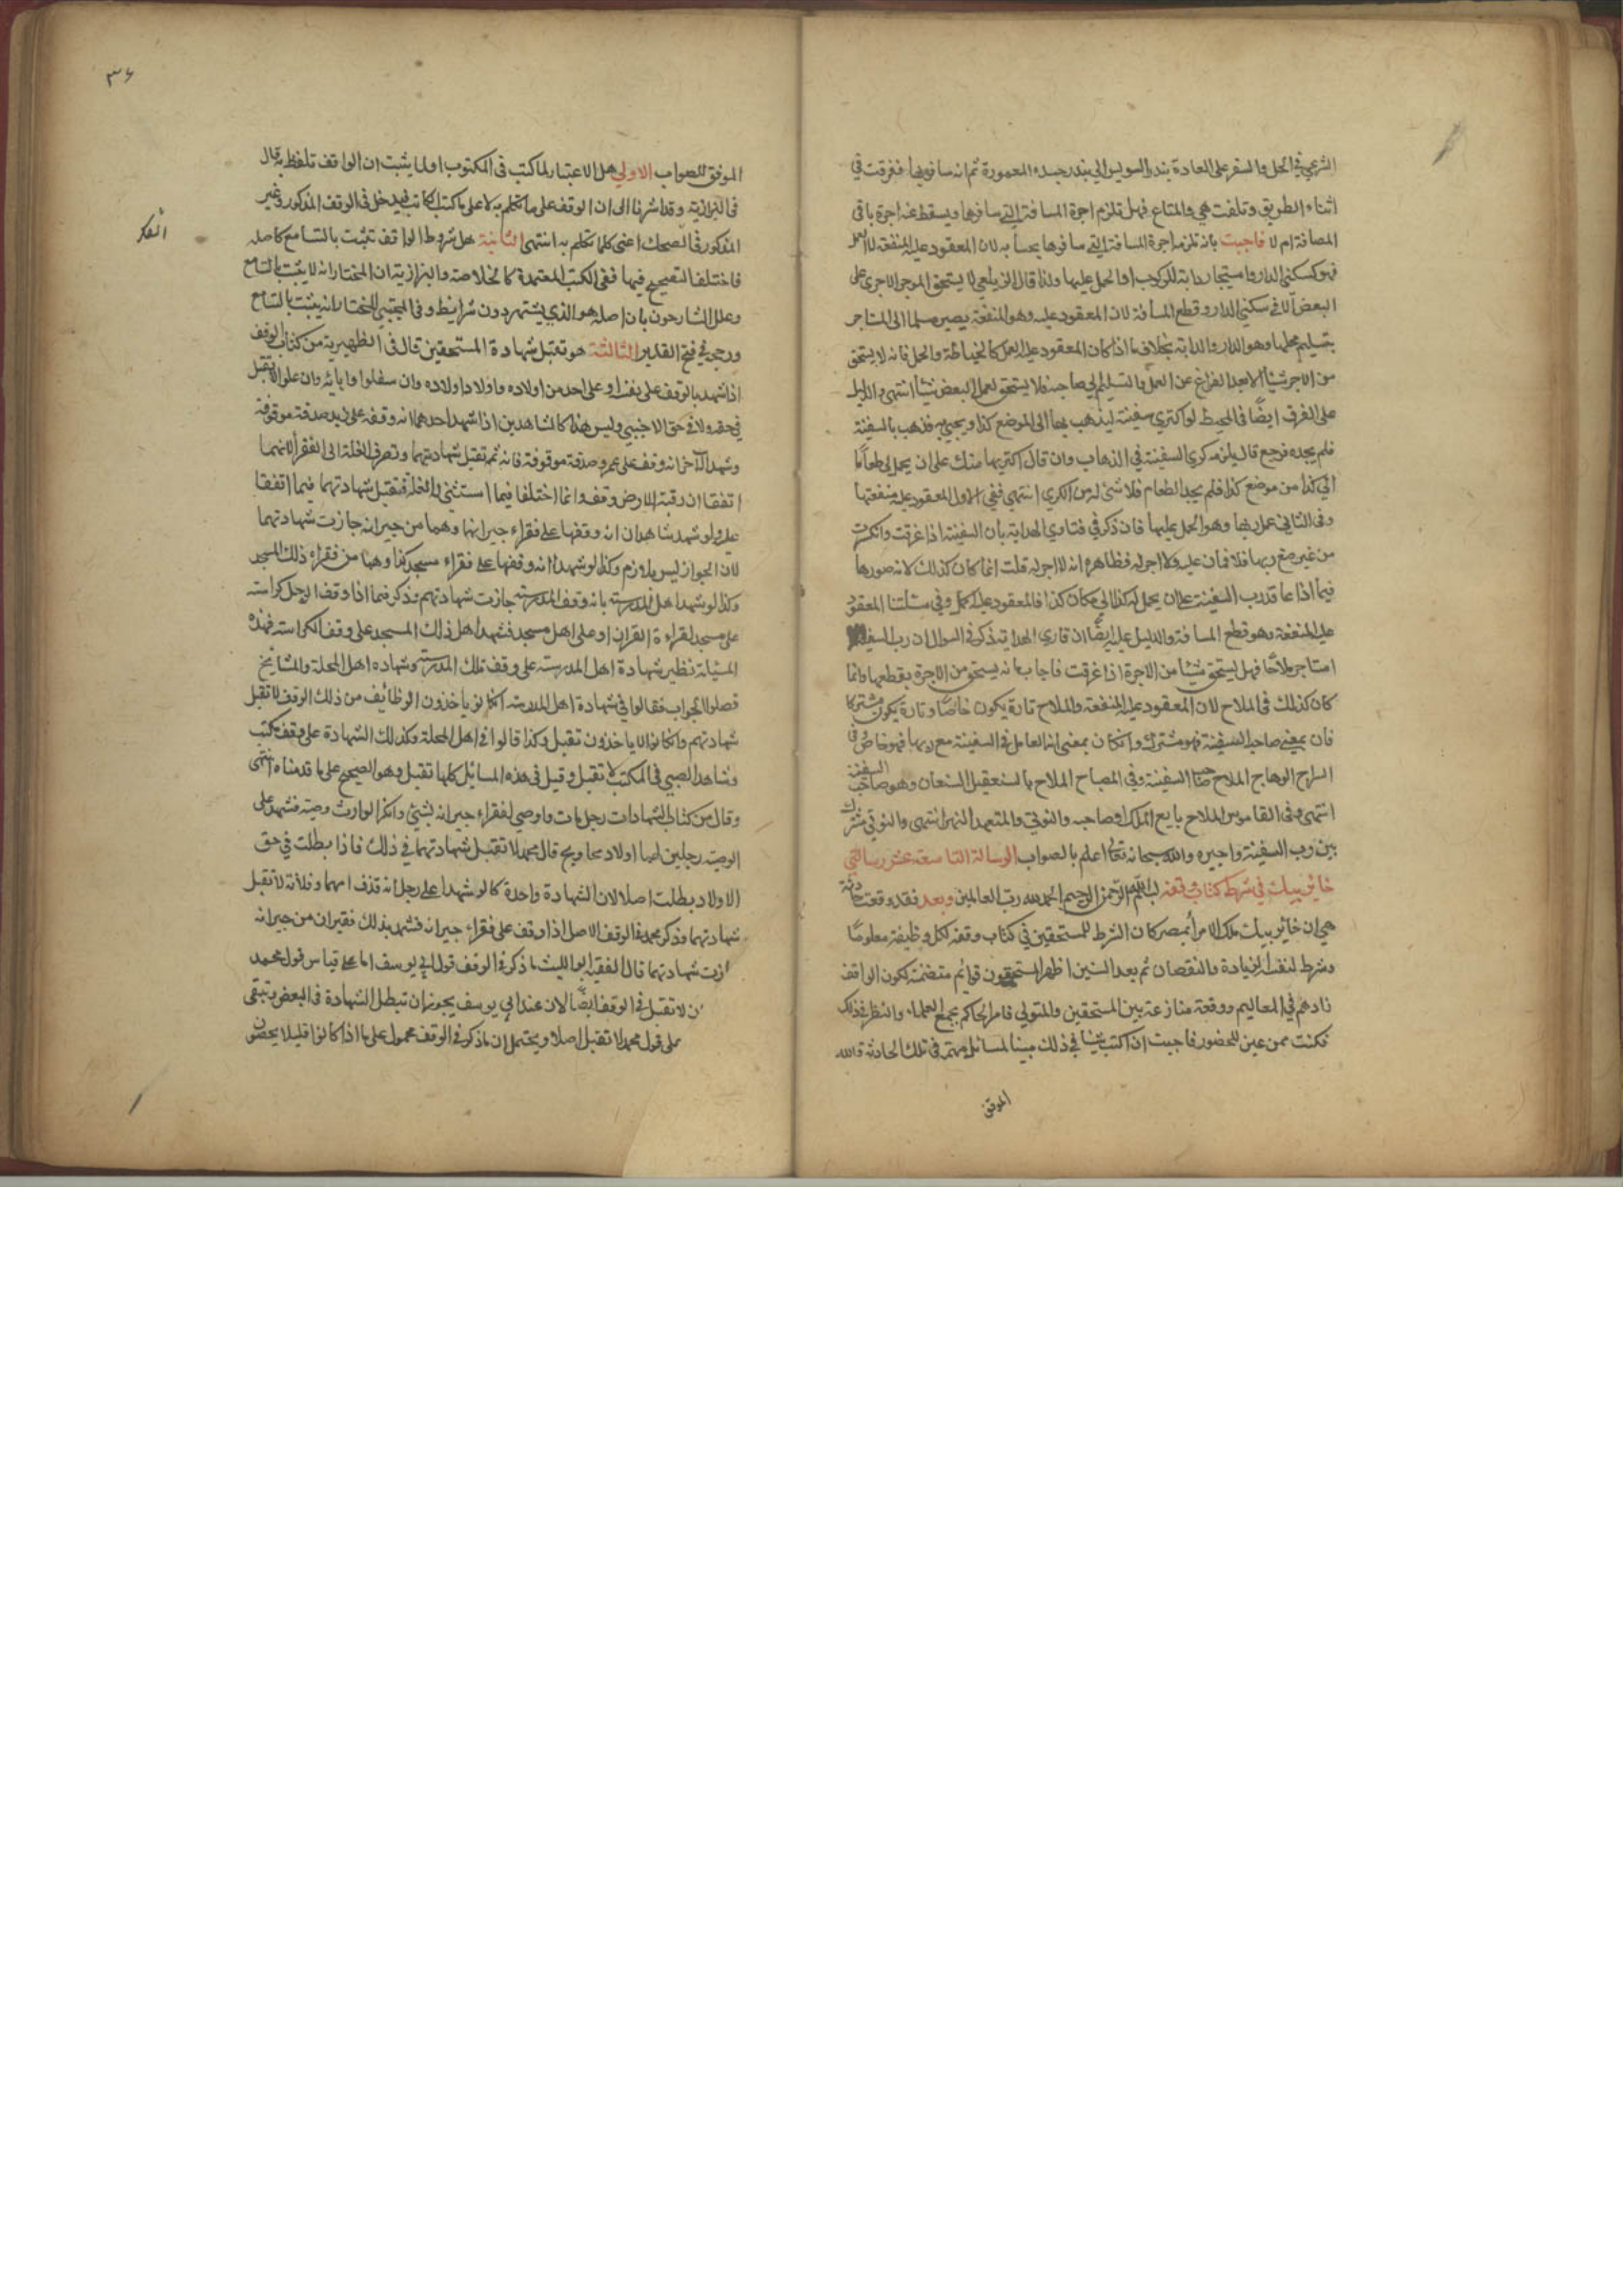 الشرعي في الحمل والسفر على العادة بندر السويس الى بندر جده المعمورة ثم انه سافر بها فغرقت في
اثناء الطريق وتلفت هي والمتاع فهل تلزم اجرة المسافة التي سافرها ويسقط عنه اجرة باقي
المسافة ام لا فاجبت بانه تلزمه اجرة المسافة التي سافرها بحسابه لان المعقود عليه المنفعة لا العمل
فهو كسكنى الدار واستيجار دابة للركوب او الحمل عليها ولذا قال الزيلعي لا يستحق الموجر الاجرة على
البعض الا في سكنى الدار وقطع المسافة لان المعقود عليه وهو المنفعة يصير مسلما الى المستاجر
بتسليم محلها وهو الدار والدابة بخلاف ما اذا كان المعقود عليه العمل كالخياطة والحمل فانه لا يستحق
من الاجر شيأ الا بعد الفراغ عن العمل والتسليم الى صاحبه فلا يستحق لعمل البعض شيأ انتهى والدليل
على الفرق ايضًا في المحيط لو اكترى سفينة ليذهب بها الى الموضع كذا ويجيئ فذهب بالسفينة
فلم يجده فرجع قال يلزمه كرى السفينة في الذهاب وان قال اكتريها منك على ان يحمل لي طعامًا
الى كذا من موضع كذا فلم يجد الطعام فلا شئ له من الكرى انتهى ففي الاول المعقود عليه منفعتها
وفي الثاني عمل ربها وهو الحمل عليها فان ذكر في فتاوى الهداية بان السفينة اذا غرقت وانكسرت
من غير صنع ربها فلا ضمان عليه ولا اجر له فظاهره انه لا اجر له قلت انما كان كذلك لانه صورها
فيما اذا عاقد رب السفينة على ان يحمل له كذا الى مكان كذا فالمعقود عليه الحمل وفي مسئلتنا المعقود
عليه المنفعة وهو قطع المسافة والدليل عليه ايضًا ان قاري الهداية ذكر في السوال ان رب السفينة
استاجر ملاحًا فهل يستحق شيئا من الاجرة اذا غرقت فاجاب بانه يستحق من الاجرة بقطعها وانما
كان كذلك في الملاح لان المعقود عليه المنفعة والملاح تارة يكون خاصًا وتارة يكون مشتركا
فان بمعنى صاحب السفينة فهو مشترك وان كان بمعنى انه العامل في السفينة مع ربها فهو خاص وفي
السراج الوهاج الملاح صاحب السفينة وفي المصباح الملاح بالسنعقيل السنعان وهو صاحب السفينة
انتهى وفي القاموس الملاح بايع الملح او صاحبه والنوتي والمتعهد النهر انتهى والنوتي مشترك
بين رب السفينة واجيره والله سبحانه تعالى اعلم بالصواب الرسالة التاسعة عشر رسالتي
خائر بيك في شرط كتاب وقفه بسم الله الرحمن الرحيم الحمد لله رب العالمين وبعد فقد وقعت حادثة
هي ان خائر بيك ملك الامراء بمصر كان الشرط للمستحقين في كتاب وقفه لكل وظيفة معلومًا
وشرط لنفسه الزيادة والنقصان ثم بعد السنين اظهر المستحقون قوائم متضمنة لكون الواقف
زادهم في المعاليم ووقعت منازعة بين المستحقين والمتولي فامر الحاكم بجمع العلماء والنظر في ذلك
فكنت ممن عين للحضور فاجبت ان اكتب شيئا في ذلك مبينا لمسائل مهمة في تلك الحادثة والله
الموفق
٣٦
الموفق للصواب الاولى هل الاعتبار لما كتب في المكتوب او لما يثبت ان الواقف تلفظ به قال
في البزازية وقد اشرنا الى ان الوقف على ما تكلم به لا على ما كتب الكاتب فيدخل في الوقف المذكور وغير
المذكور في الصك اعني كلما تكلم به انتهى الثانية هل شروط الواقف تثبت بالتسامع كاصله
فاختلف التصحيح فيها ففي الكتب المعتمدة كالخلاصة والبزازية ان المختار انه لا يثبت بالتسامع
وعلل الشارحون بان اصله هو الذي يشتهر دون شرائط وفي المجتبى المختار انه يثبت بالتسامع
ورجح في فتح القدير الثالثة هو تقبل شهادة المستحقين قال في الظهيرية من كتاب الوقف
اذا شهد بالوقف على نفسه او على احد من اولاده واولاد اولاده وان سفلوا وابائه وان علوا لا تقبل
في حقه ولا في حق الاجنبي وليس هذا كالشاهدين اذا شهد احدهما انه وقفه على زيد صدقة موقوفة
وشهد الآخر انه وقف على عمرو صدقة موقوفة فانه ثم تقبل شهادتهما وتصرف الغلة الى الفقراء لانهما
اتفقا ان رقبة الارض وقف وانما اختلفا فيما استثنى الغلة فتقبل شهادتهما فيما اتفقا
عليه ولو شهد شاهدان انه وقفها على فقراء جيرانها وهما من جيرانه جازت شهادتهما
لان الجواز ليس بلازم وكذا لو شهدا انه وقفها على فقراء مسجد كذا وهما من فقراء ذلك المسجد
وكذا لو شهد اهل المدرسة بانه وقف المدرسة جازت شهادتهم وذكر فيما اذا وقف الرجل كراسته
على مسجد لقراءة القران او على اهل مسجد فشهد اهل ذلك المسجد على وقف الكراسة فهذه
المسئلة نظير شهادة اهل المدرسة على وقف تلك المدرسة وشهاده اهل المحلة والمشايخ
فصلوا الجواب فقالوا في شهادة اهل المدرسة ان كانو ياخذون الوظائف من ذلك الوقف لا تقبل
شهادتهم وان كانوا لا ياخذون تقبل وكذا قالوا في اهل المحلة وكذلك الشهادة على وقف مكتب
وشاهد الصبي في المكتب لا تقبل وقيل في هذه المسائل كلها تقبل وهو الصحيح على ما قدمناه انتهى
وقال من كتاب الشهادات رجل مات واوصى لفقراء جيرانه بشيئ وانكر الوارث وصيته فشهد على
الوصية رجلين لهما اولاد محاويج قال محمد لا تقبل شهادتهما في ذلك فاذا بطلت في حق
الاولاد بطلت اصلا لان الشهادة واحدة كالو شهدا على رجل انه قذف امهما وفلانة لا تقبل
شهادتهما وذكر محمد في الوقف الاصل اذا وقف على فقراء جيرانه فشهد بذلك فقيران من جيرانه
ازت شهادتهما قال الفقيه ابو الليث ما ذكر في الوقف قول ابي يوسف اما على قياس قول محمد
ن لا تقبل في الوقف ايضًا لان عند ابي يوسف يجوز ان تبطل الشهادة في البعض وتبقى
على قول محمد لا تقبل اصلا ويحتمل ان ما ذكر في الوقف محمول على ما اذا كانوا قليلا يحصون